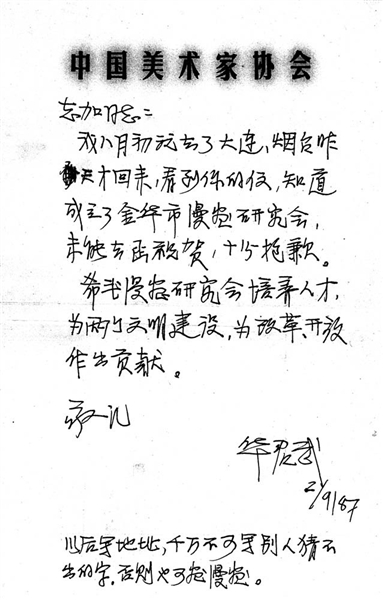 中国美术家协会
志加同志：
我八月初就去了大连、烟台昨
天才回来，看到你的信，知道
成立了金华市漫画研究会，
未能去函祝贺，十分抱歉。
希望漫画研究会培养人才，
为两个文明建设，为改革、开放
作出贡献。
敬礼
华君武
2/9/87
以后写地址，千万不可写别人猜不
出的字，否则也可画漫画。